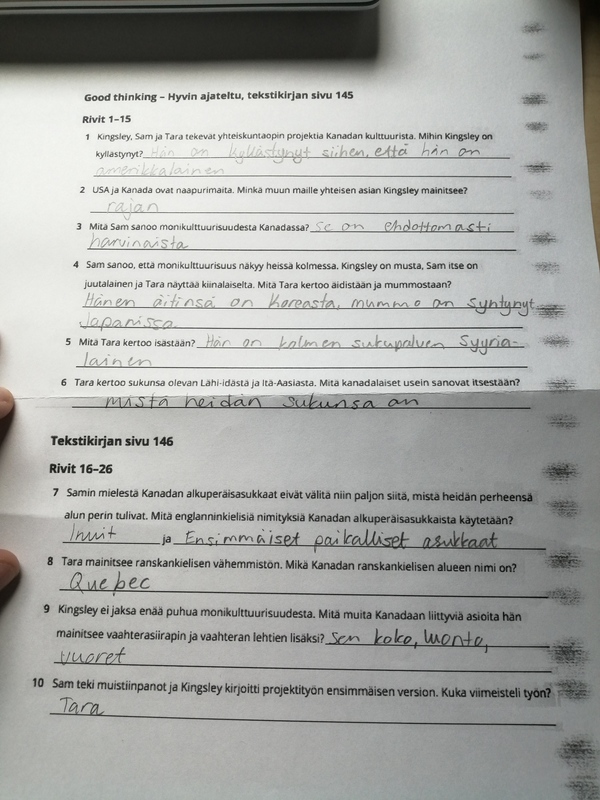 Good thinking – Hyvin ajateltu, tekstikirjan sivu 145
Rivit 1–15
1 Kingsley, Sam ja Tara tekevät yhteiskuntaopin projektia Kanadan kulttuurista. Mihin Kingsley on
kyllästynyt? Hän on kyllästynyt siihen, että hän on
amerikkalainen
2 USA ja Kanada ovat naapurimaita. Minkä muun maille yhteisen asian Kingsley mainitsee?
rajan
3 Mitä Sam sanoo monikulttuurisuudesta Kanadassa? se on ehdottomasti
harvinaista
4 Sam sanoo, että monikulttuurisuus näkyy heissä kolmessa. Kingsley on musta, Sam itse on
juutalainen ja Tara näyttää kiinalaiselta. Mitä Tara kertoo äidistään ja mummostaan?
Hänen äitinsä on Koreasta, mummo on syntynyt
Japanissa
5 Mitä Tara kertoo isästään? Hän on kolmen sukupolven Syyria-
lainen
6 Tara kertoo sukunsa olevan Lähi-idästä ja Itä-Aasiasta. Mitä kanadalaiset usein sanovat itsestään?
mistä heidän sukunsa on
Tekstikirjan sivu 146
Rivit 16–26
7 Samin mielestä Kanadan alkuperäisasukkaat eivät välitä niin paljon siitä, mistä heidän perheensä
alun perin tulivat. Mitä englanninkielisiä nimityksiä Kanadan alkuperäisasukkaista käytetään?
Inuit ja Ensimmäiset paikalliset asukkaat
8 Tara mainitsee ranskankielisen vähemmistön. Mikä Kanadan ranskankielisen alueen nimi on?
Quebec
9 Kingsley ei jaksa enää puhua monikulttuurisuudesta. Mitä muita Kanadaan liittyviä asioita hän
mainitsee vaahterasiirapin ja vaahteran lehtien lisäksi? sen koko, luonto,
vuoret
10 Sam teki muistiinpanot ja Kingsley kirjoitti projektityön ensimmäisen version. Kuka viimeisteli työn?
Tara